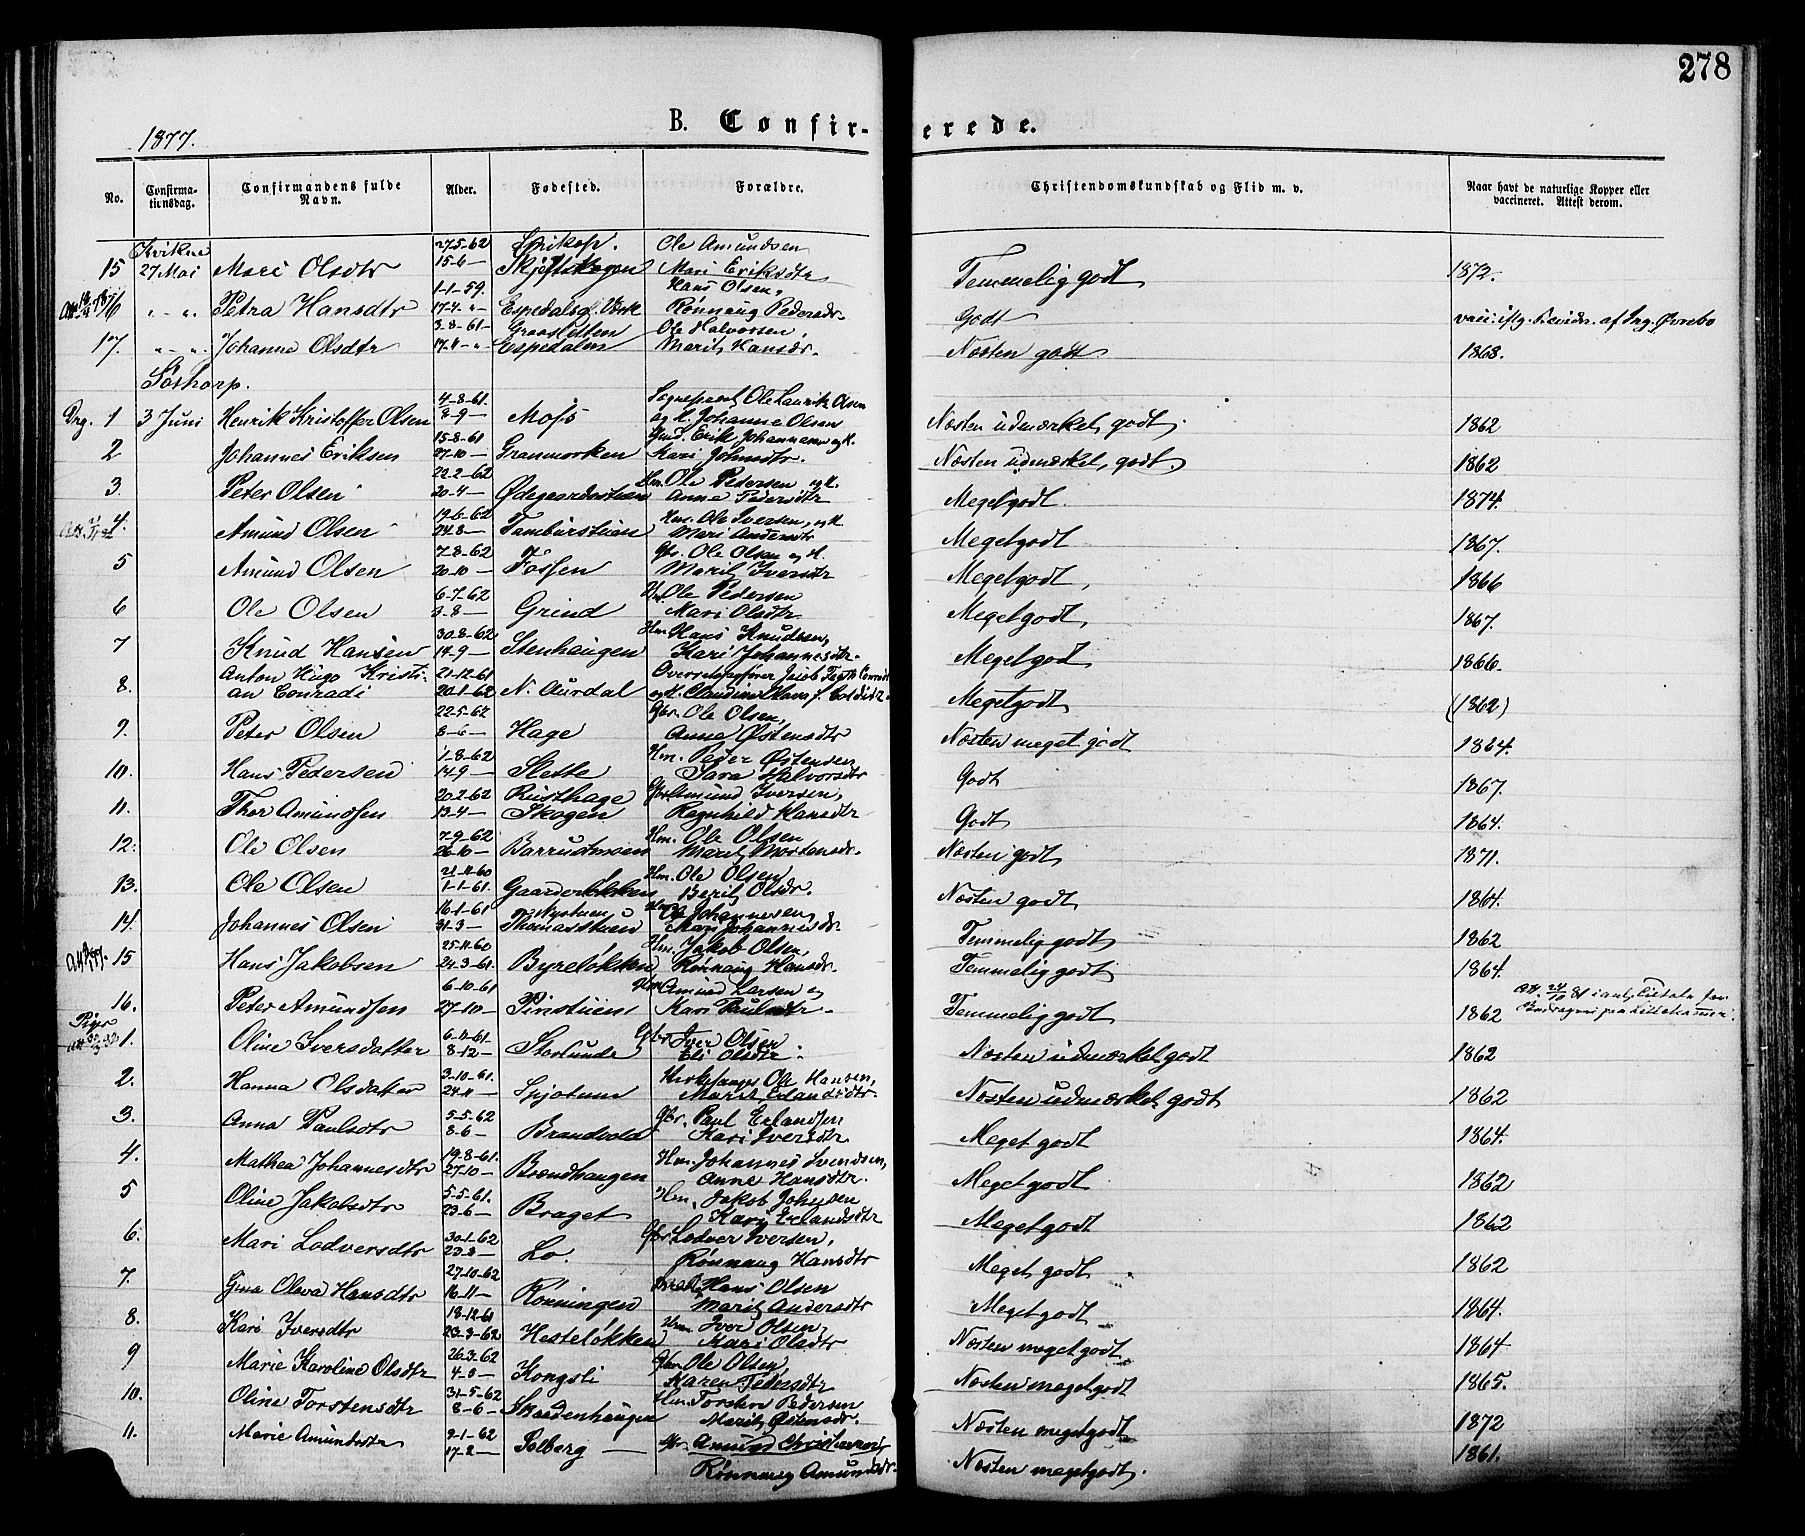 278
B. Confir-
erede.
1877.
No.
Confirma-
tionsdag.
Confirmandens fulde
Navn.
Alder.
Fødested.
Forældre.
Christendomskundskab og Flid m. v.
Naar havt de naturlige Kopper eller
vaccineret. Attest derom.
Kvikne 27-5-62 Ole Amundsen
15 27 Mai Mari Olsdtr 15-6- Skjefteskogen Mari Eriksdtr Temmelig godt 1872.
1-1-59. Hans Olsen,
16 " " Petra Hansdtr 17-4-" Espedals Værk Rønnaug Pedersdr. Godt
3-8-61- Graasletten Ole Halvorsen,
17. " " Johanne Olsdtr 17-11-" Espedalen Marit Hansdr. Næsten godt 1868.
Søthorp.
4-8-61. Sognepræst Ole Laurits Olsen
Drg. 1 3 Juni Henrik Kristoffer Olsen 8-9- Moss og H. Johanne Olsen Næsten udmærket godt. 1862
15-8-61 Gmd. Erik Johannesen og H.
2 Johannes Eriksen 27-10- Granmorken Kari Johnsdtr. Næsten udmærket godt. 1862
22-2-62 Hm. Ole Pedersen og H.
3 Peter Olsen 20-4- Ødegaardsstuen Anne Pedersdtr Meget godt. 1874.
19-6-62 Hm. Ole Iversen, og H
4. Amund Olsen 24-8- Tamburstuen Mari Andersdtr Meget godt 1867.
7-8-62 Gbr. Ole Olsen og H.
5 Amund Olsen 20-10- Fossen Marit Iversdtr Meget godt, 1866
6-7-62 Ole Pedersen
6 Ole Olsen 3-8- Grind Mari Olsdtr Meget godt, 1867.
30-8-62 Hm. Hans Knudsen,
7 Knud Hansen 19-9- Stenhaugen Kari Johannesdtr. Meget godt 1866.
Anton Hugo Kristi- 21-12-61 Overretssagfører Jacob
8. an Conradi 20-1-62 N. Aurdal og H. Claudine Meget godt (1862)
22-5-62 Gbr. Ole Olsen,
9. Peter Olsen 8-6- Hage Anne Østensdtr Næsten meget godt 1864.
1-8-62 Hm. Peder Østensen
10. Hans Pedersen 14-9- Slette Sara Halvorsdtr Godt 1867.
20-2-62 Rusthage Gbr. Amund Iversen,
11. Thor Amundsen 13-4- Skogen Ragnhild Hansdtr Godt 1864.
7-9-62 Hm. Ole Olsen
12. Ole Olsen 26-10- Marit Mortensdr. Næsten godt 1871.
21-11-60 Hm. Ole Olsen
13. Ole Olsen 1-1-61. Gaarderløkken Berit Olsdr. Næsten godt 1864.
16-1-61 Nystuen Hm. Ole Johannesen,
14. Johannes Olsen 31-3- Thomasstuen Mari Johannesdr Temmelig godt 1862
25-11-60 Hm. Jakob Olsen,
15 Hans Jakobsen 24-3-61. Byreløkken Rønnaug Hansdr. Temmelig godt 1864.
6-10-61 Hm. Amund Larsen og
16. Peter Amundsen 27-10- Pinstuen Kari Paulsdtr. Temmelig godt 1862
Piger 6-11-61. Gbr. Iver Olsen
1. Oline Iversdatter 8-12- Storlunde Eli Olsdtr. Næsten udmærket godt 1862
3-10-61. Kirkesanger Ole Hansen,
2. Hanna Olsdatter 24-11- Marit Erlandsdtr. Næsten udmærket godt 1862
5-5-62 Gbr. Paul Erlandsen
3. Anna Paulsdtr 8-6- Brandvold Kari Iversdtr Meget godt 1864.
19-8-61. Hm. Johannes Svendsen,
4. Mathea Johannesdtr 27-10- Brændhaugen Anne Hansdtr. Meget godt 1862
5-5-61. Hm. Jakob Johnsen
5 Oline Jakobsdtr 23-6- Braget Kari Erlandsdtr Meget godt 1862
30-1-62 Gbr. Lodver Iversen,
6. Mari Lodversdtr 23-3- Lo. Rønnaug Hansdtr Meget godt 1862
27-10-62 Hans Olsen
7. Gina Olava Hansdtr 16-11- Rønningen Marit Andersdtr Meget godt 1864.
18-12-61 Hm. Iver Olsen,
8. Kari Iversdtr 23-3-62 Hesteløkken Mari Olsdtr Næsten meget godt 1864
26-3-62 Gbr. Ole Olsen,
9 Marie Karoline Olsdtr 4-5- Kongsli Karen Pedersdtr Næsten meget godt 1865.
31-5-62 Hm. Torsten Pedersen
10. Oline Torstensdtr 8-6- Skaadenhaugen Marit Østensdr. Næsten meget godt 1872
9-1-62 Gbr. Amund Christensen
11. Marie Amundsdtr 17-2- Solberg Rønnaug Amundsdr. Næsten meget godt. 1861.